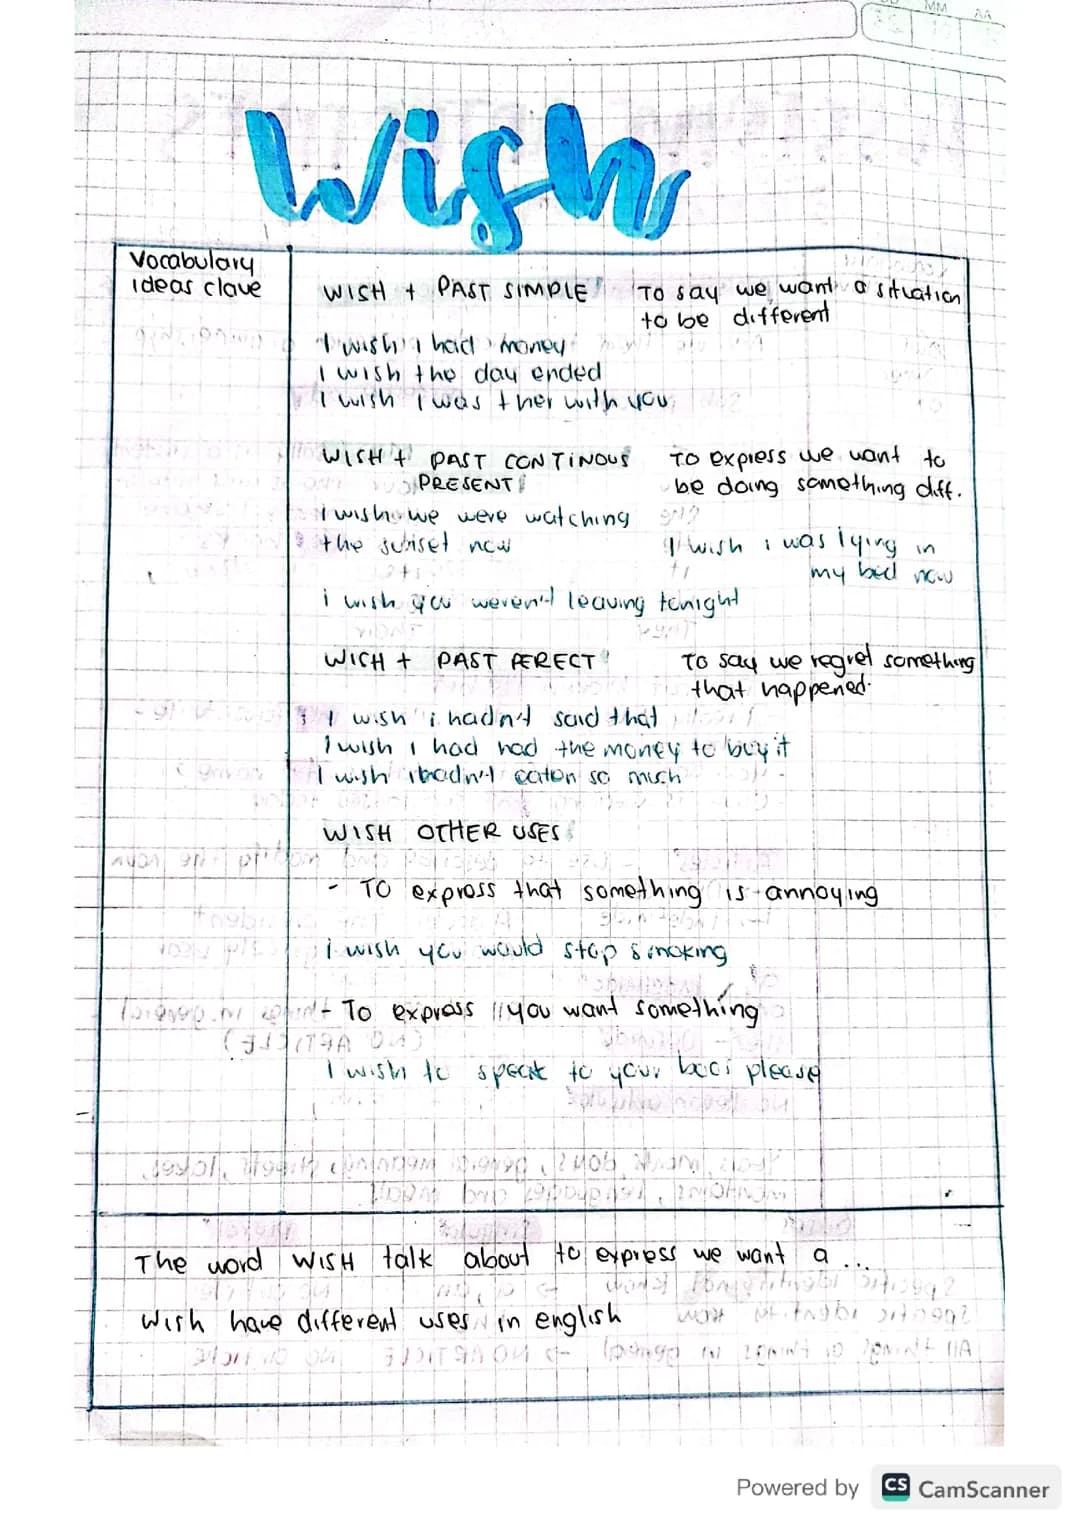 MM AA
Wish
Vocabulary
ideas clave
WISH + PAST SIMPLE
To say we want a situation
to be different
I wish i had money
I wish the day ended
I wish I was ther with you
WISH + PAST CONTINOUS
PRESENT
To express we want to
be doing something diff.
I wish we were watching
the sunset now
I wish i was lying in
my bed now
i wish you weren't leaving tonight
WISH + PAST PERECT
To say we regret something
that happened.
I wish i hadn't said that
I wish I had had the money to buy it
I wish i hadn't eaten so much
WISH OTHER USES
- TO express that something is annoying
i wish you would stop smoking
- To express you want something
I wish to speak to your please
The word WISH talk about to express we want a ...
Wish have different uses in english
Powered by CS CamScanner